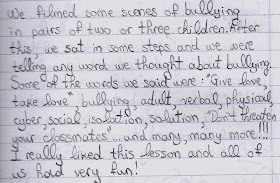 We filmed some scenes of bullying
in pairs of two or three children. After
this, we sat in some steps and we were
telling any word we thought about bullying.
Some of the words we said were: "Give love,
take love", bullying, adult, verbal, physical,
cyber, social, isolation, solution, "Don't threaten
your classmates"... and many, many more!!!
I really liked this lesson and all of
us had very fun!